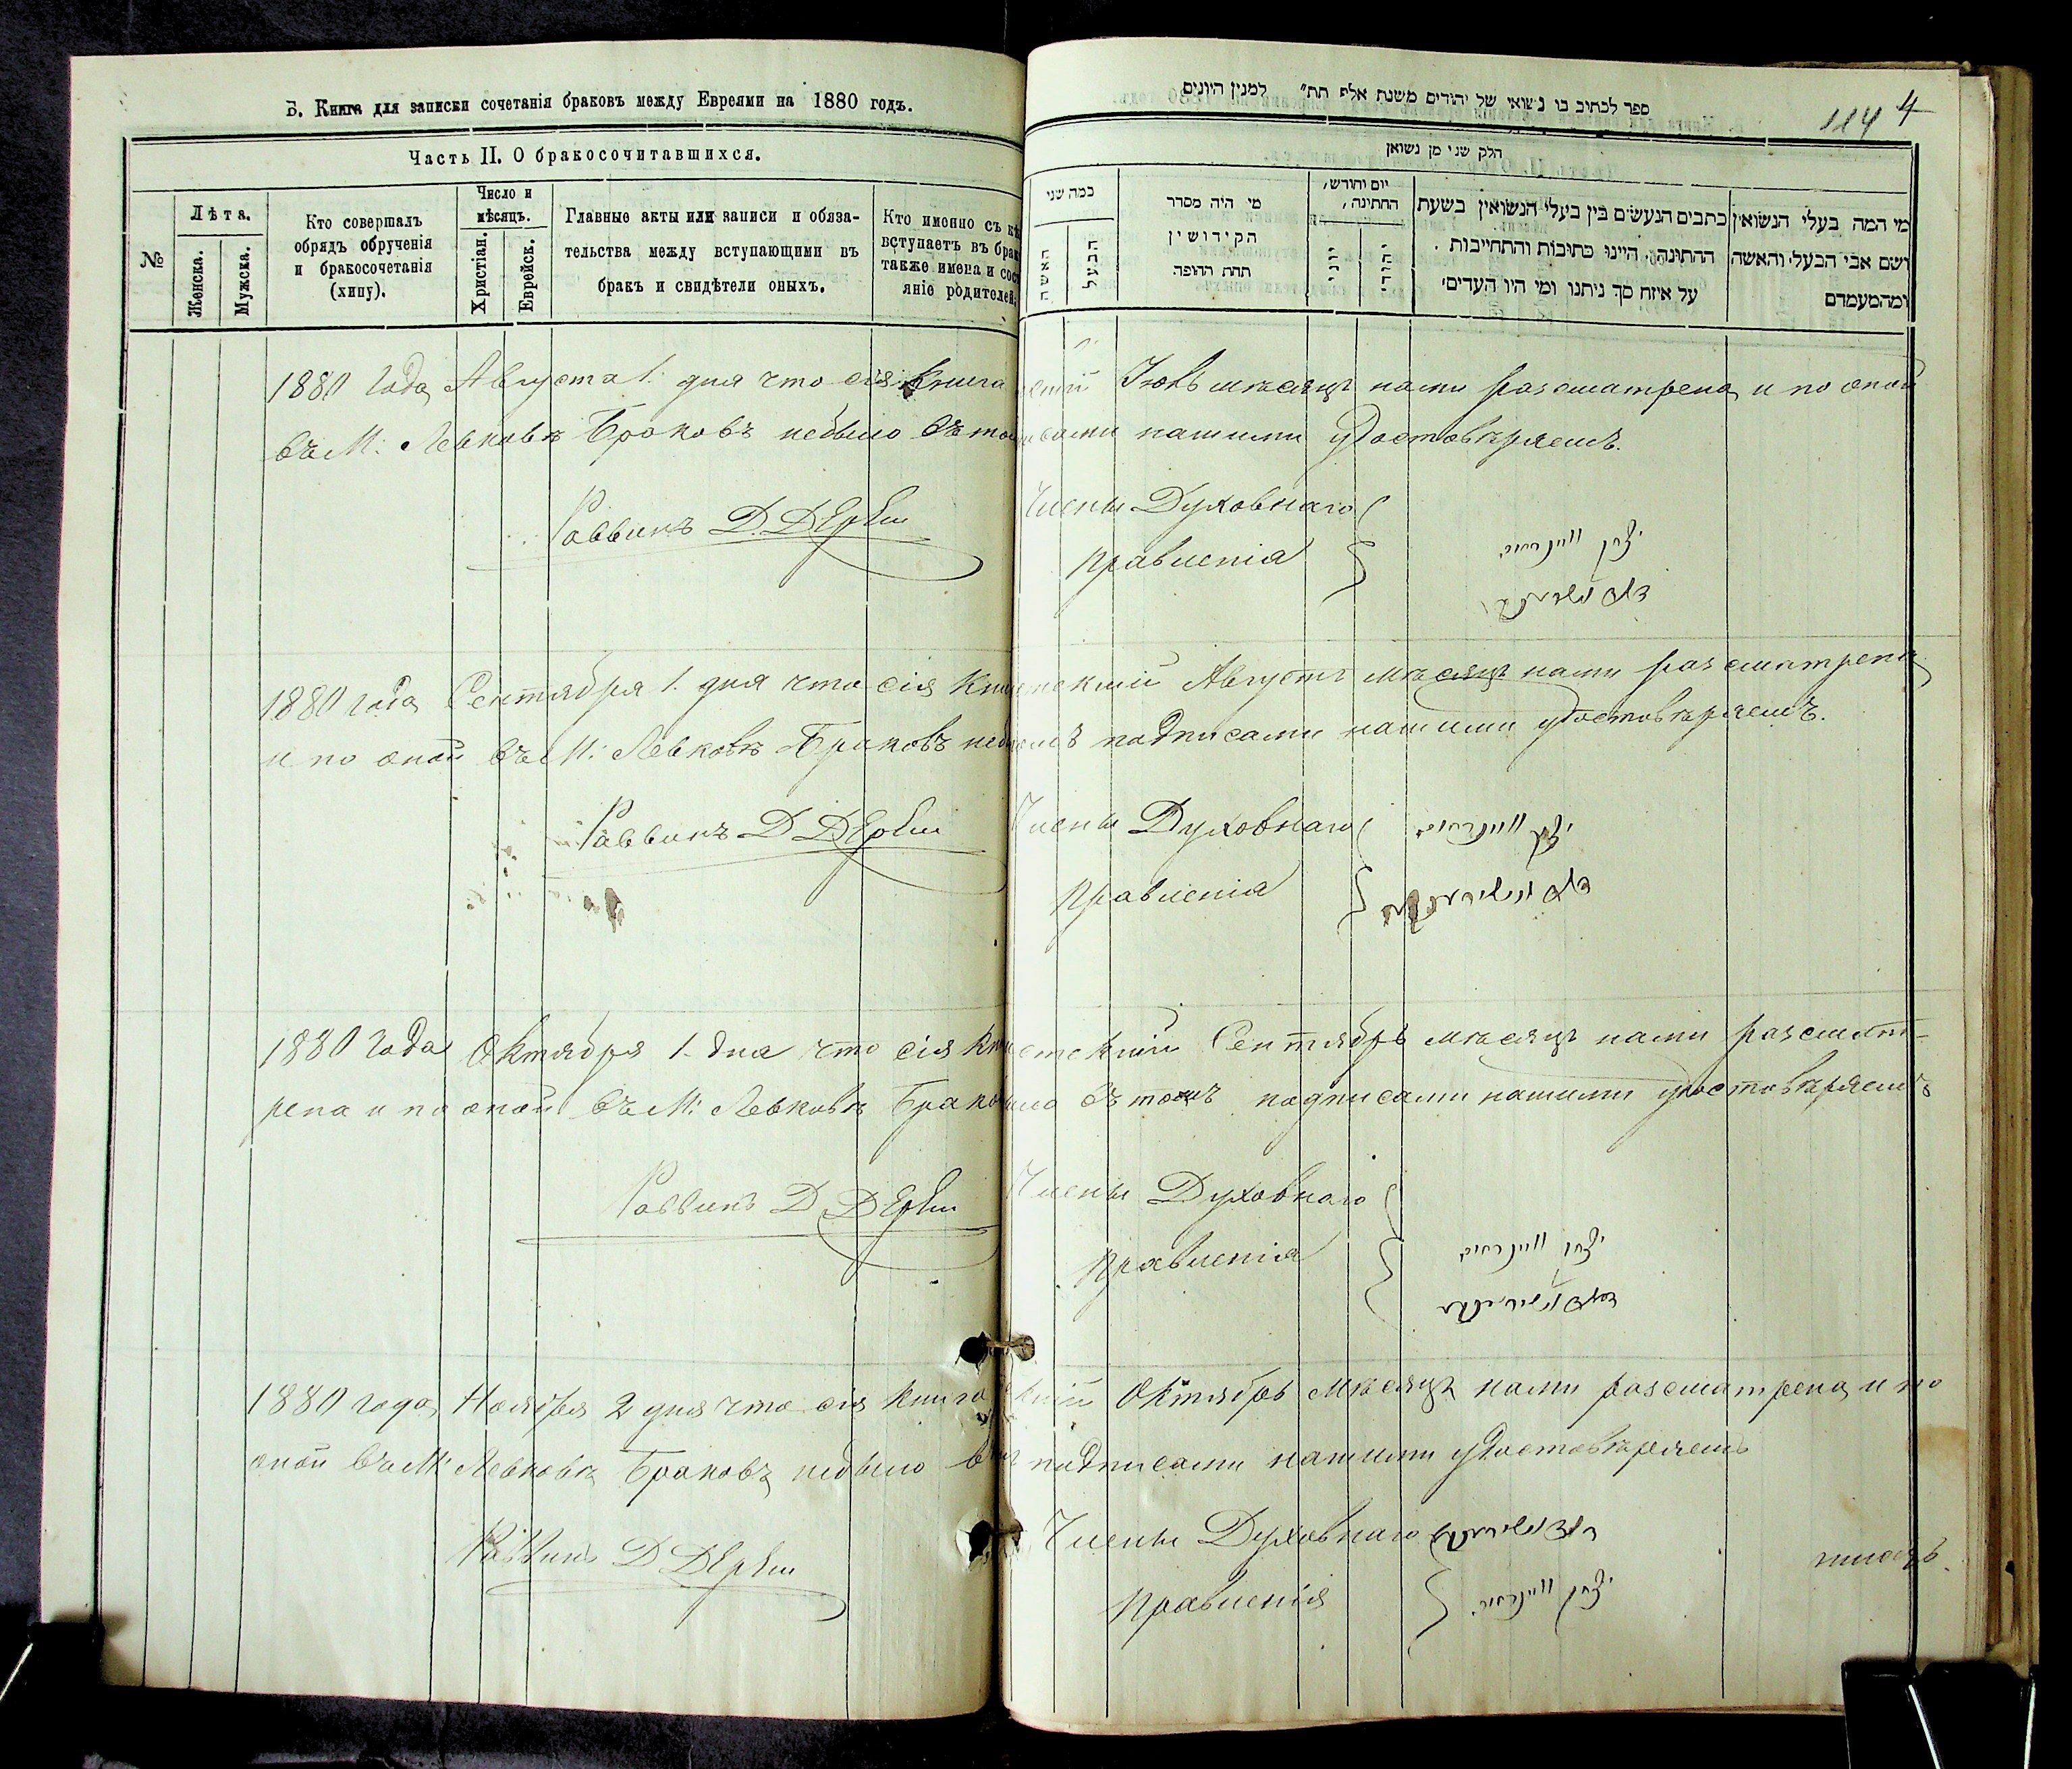 Б. Книга для записки сочетанія браковъ между Евреями на 1880 годъ.
Часть II. О бракосочитавшихся.
№
Лѣта.
Женска.
Мужска.
Кто совершалъ
обрядъ обрученія
и бракосочетанія
(хипу).
Число и
мѣсяцъ.
Христіан.
Еврейск.
Главные акты или записи и обяза-
тельства между вступающими въ
бракъ и свидѣтели оныхъ.
Кто именно съ кѣ
вступаетъ въ брак
также имена и сос
яніе родителей
ספר לכתוב בו נשואי של יהודים משנת אלף תת״ למנין היונים
114 4
חלק שני מן נשואן
כמה שני
האשה
הבעל
מי היה מסדר
הקידושין
תחת החופה
יום וחודש,
החתינה,
יווני
יהודי
כתבים הנעשים בין בעלי הנשואין בשעת
ההתונה, היינו כתובות והתחייבות .
על איזח סך ניתנו ומי היו העדים,
מי המה בעלי הנשואין
ושם אבי הבעל, והאשה
ומהמעמדם
1880 года Августа 1. дня что сія Книга Іюль мѣсяцъ нами разсматрена и по оной
въ М: Левковѣ Браковъ небыло въ том нашими удостовѣряемъ.
Раввинъ Д. Члены Духовнаго
Правленія
1880 года Сентября 1. дня что сія Кни Августъ мѣсяцъ нами разсматрена
и по оной въ М: Левковѣ Браковъ неб подписами нашими удостовѣряемъ.
Раввинъ Д Члены Духовнаго
Правленія
1880 года Октября 1. дня что сія Кни Сентябрь мѣсяцъ нами разсмат-
рена и по оной въ М: Левковѣ Брако въ томъ подписами нашими удостовѣряемъ
Раввинъ Д Члены Духовнаго
Правленія
1880 года Ноября 2 дня что сія Книга Октябрь мѣсяцъ нами разсматрена и по
оной въ М: Левковѣ Браковъ небыло в подписами нашими удостовѣряемъ
Раввинъ Д Члены Духовнаго
Правленія